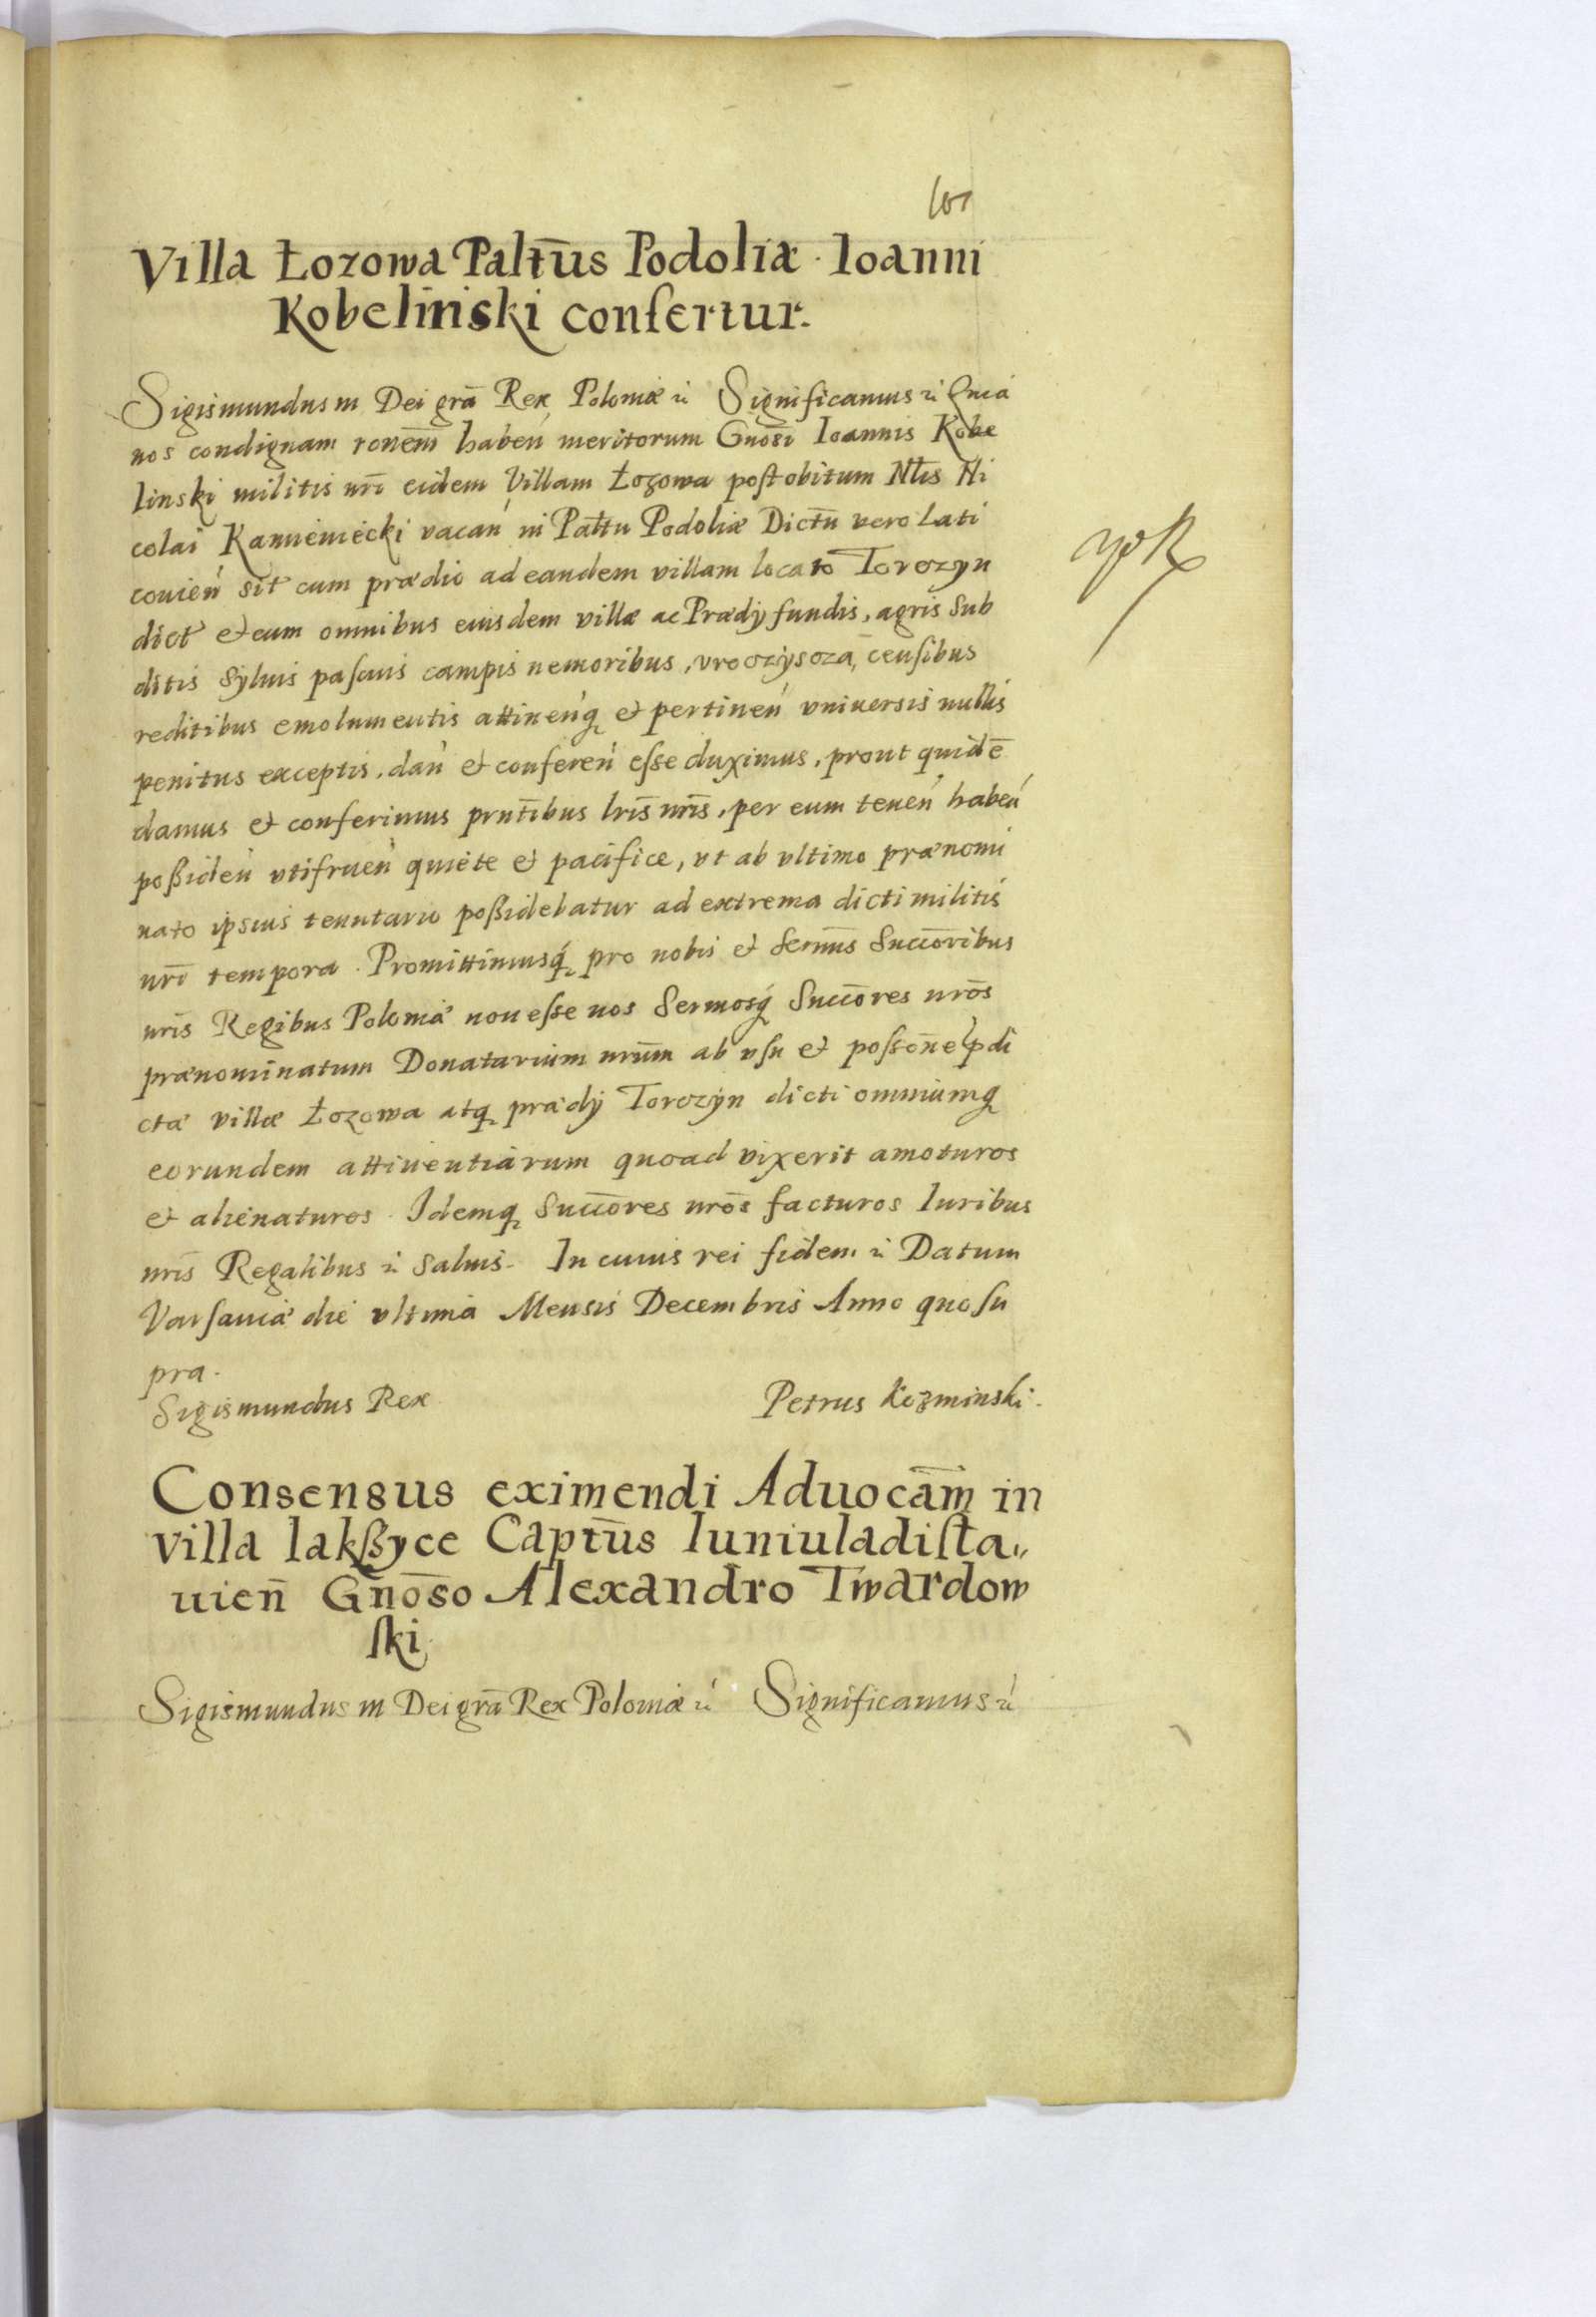 101
Villa Łozowa Palt̄us Podoliæ. Ioanni
Kobelinski confertur.
Sigismundus III Dei grā Rex Poloniæ &c Significamus &c Quia
nos condignam ronem̄ haben̄ meritorum Gnosi Ioannis Kobe
linski militis nrī eidem Villam Łozowa post obitum Nłis Ni
colai Kamieniecki vacan̄ in Pałtu Podoliæ Dictu vero Lati
couien̄ sit cum prædio ad eandem villam locato Torczyn
dict et cum omnibus eiusdem villæ ac Prædÿ fundis, agris sub
ditis syluis pascuis campis nemoribus, vroczyscza, censibus
reditibus emolumentis attinen̄q et pertinen̄ vniuersis nullis
penitus exceptis, dan̄ et conferen̄ esse duximus, prout quidē
damus et conferimus prnt̄ibus lrīs nrīs, per eum tenen̄ haben̄
possiden̄ vtifruen̄ quiete et pacifice, vt ab vltimo prænomi
nato ipsius tenutario possidebatur ad extrema dicti militis
nrī tempora. Promittimusq pro nobis et Sermīs Succōribus
nrīs Regibus Poloniæ non esse nos Sermosq Succōres nrōs
prænominatum Donatarium nrūm ab vsu et possōne pdi
ctæ villæ Łozowa atq prædÿ Torczyn dicti omniumq
eorundem attinentiarum quoad vixerit amoturos
et alienaturos. Idemq Succōres nrōs facturos Iuribus
nrīs Regalibus &c saluis. In cuius rei fidem &c Datum
Varsauiæ die vltima Mensis Decembris Anno quo su
pra.
Sigismundus Rex Petrus Kozminski.
Consensus eximendi Aduocām in
villa Iakßyce Capt̄us Iuniuladista„
uien̄ Gn̄ōso Alexandro Twardow
ski
Sigismundus III Dei grā Rex Poloniæ &c Significamus &c